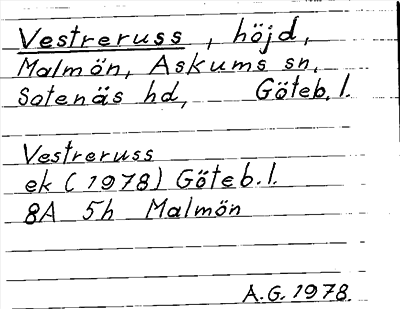 Vestreruss , höjd,
Malmön, Askums sn,
Sotenäs hd, Göteb. l.
Vestreruss
ek (1978) Göteb. l.
8A 5h Malmön
A.G. 1978.